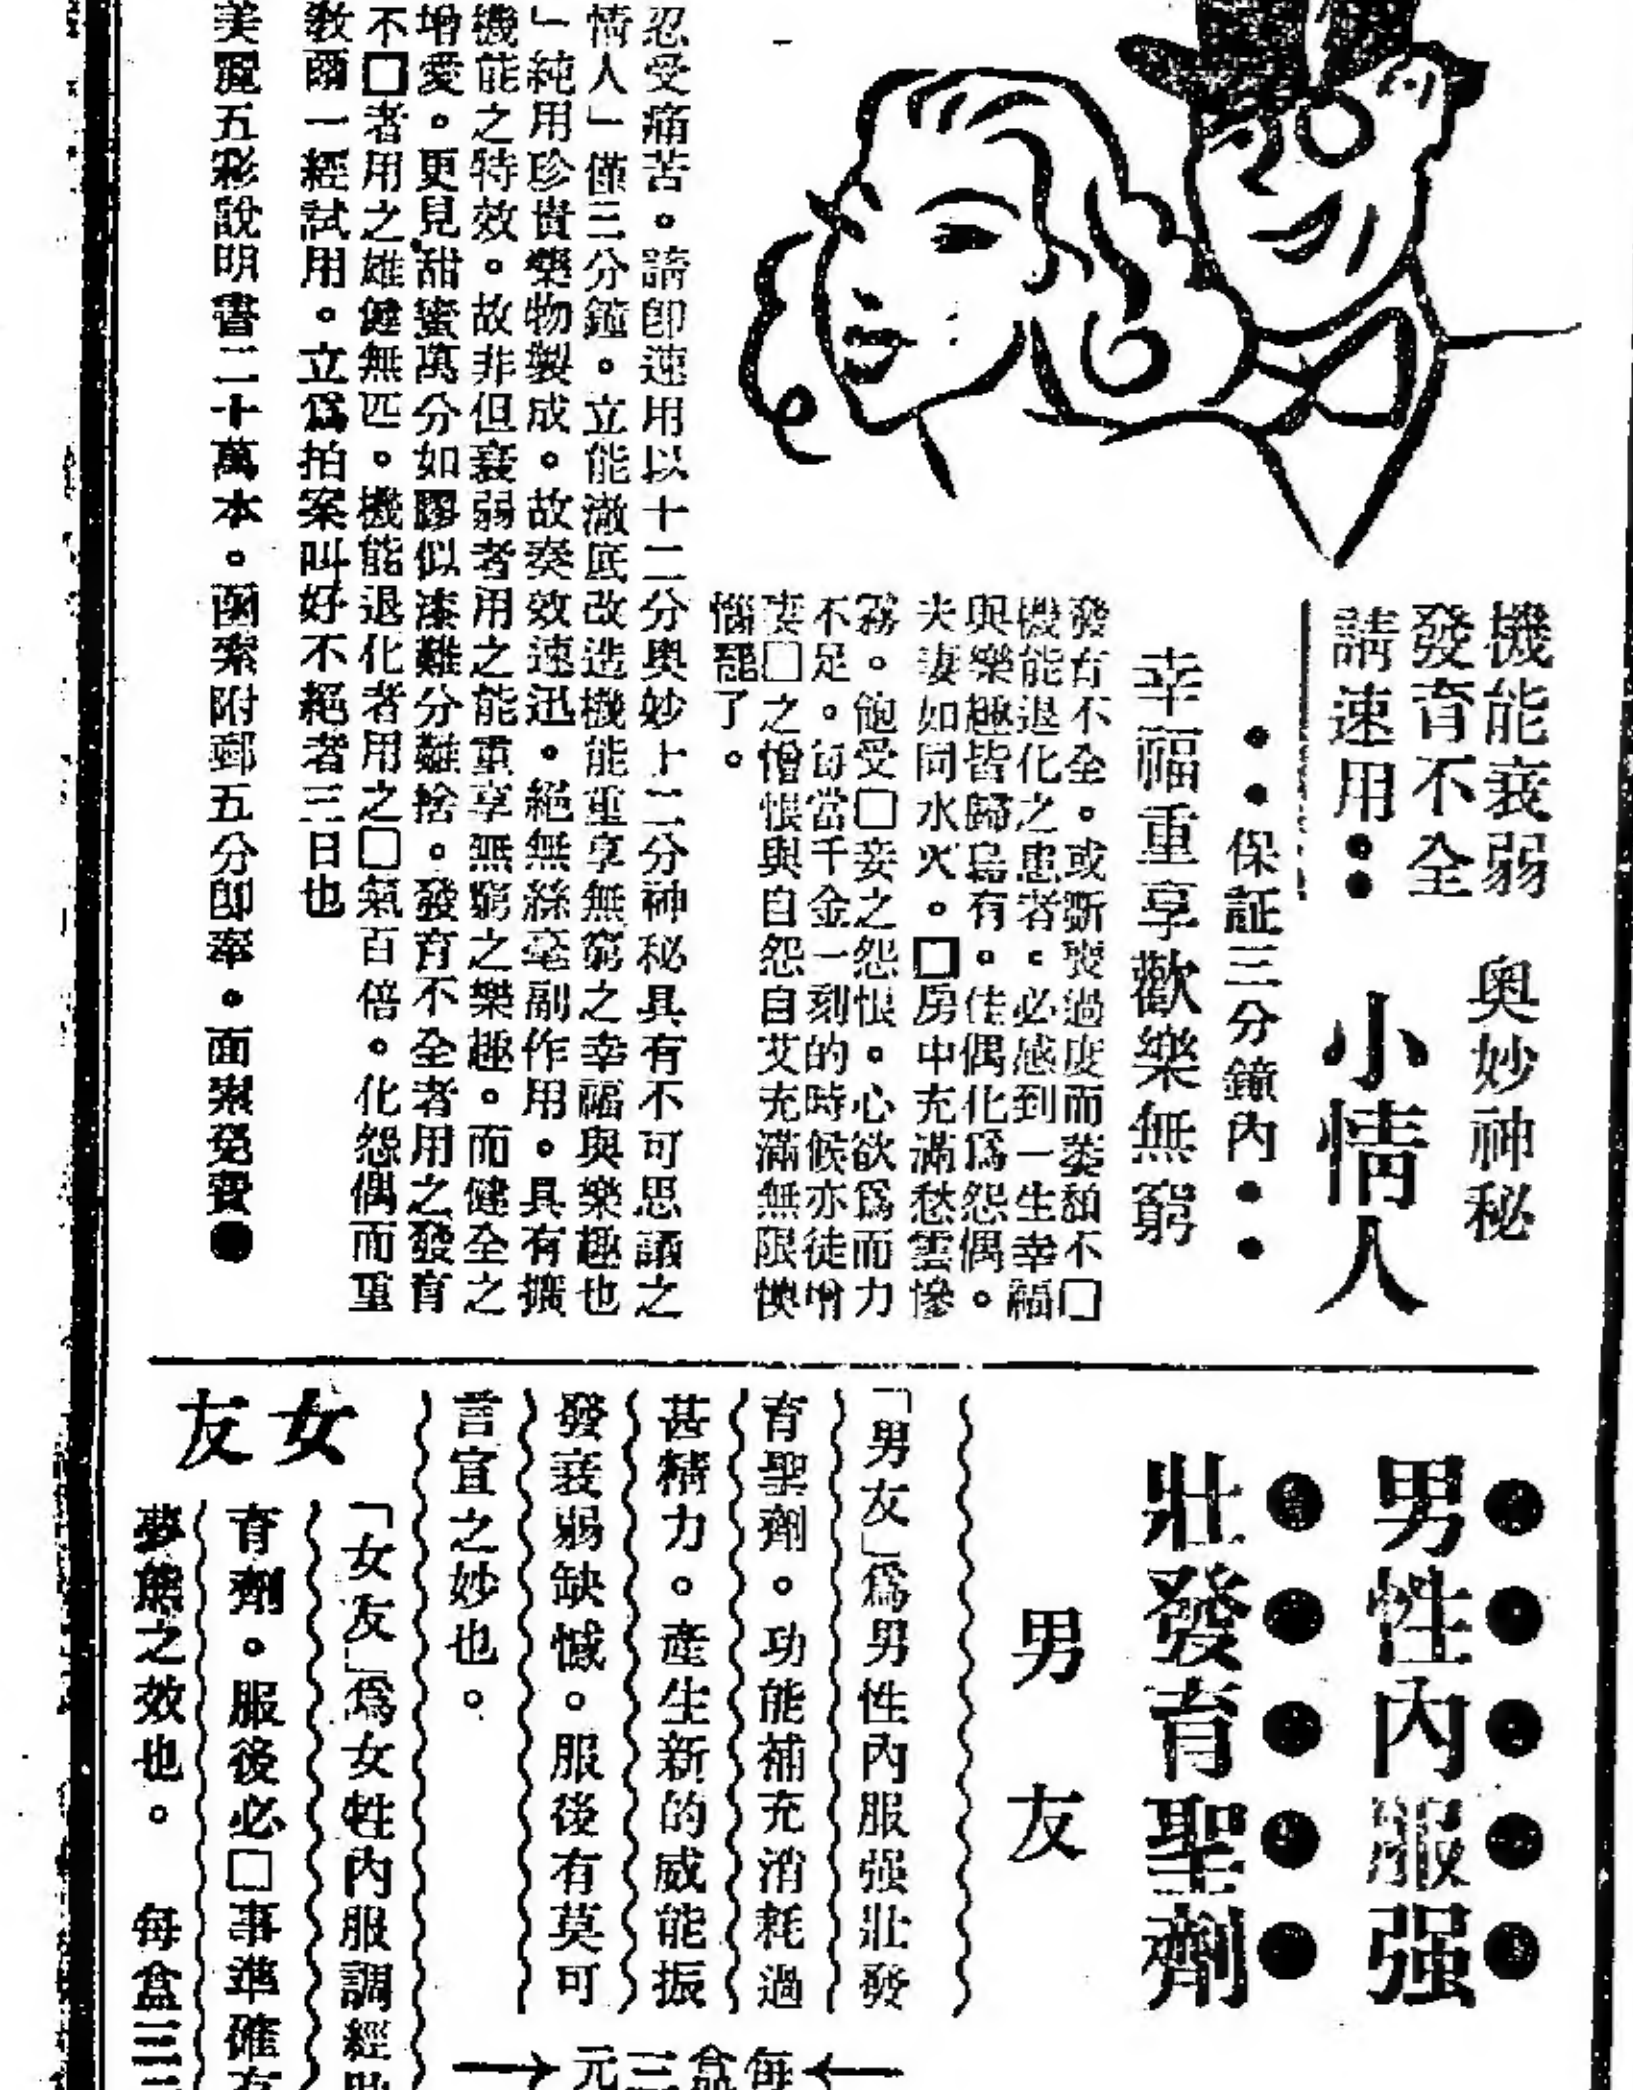 機能衰弱
發育不全
請速用：
奧妙神秘
小情人
••保証三分鐘內••
幸福重享歡樂無窮
發育不全。或斲喪過度而萎頹不□
機能退化之患者。必感到一生幸福
與樂趣皆歸烏有。佳偶化爲怨偶。
夫妻如同水火。□房中充滿愁雲慘
霧。飽受□妾之怨恨。心欲爲而力
不足。每當千金一刻的時候亦徒增
妻□之憎恨與自怨自艾充滿無限懊
惱罷了。
忍受痛苦。請卽速用以十二分奧妙十二分神秘具有不可思議之
情人」僅三分鐘。立能澈底改造機能重享無窮之幸福與樂趣也
」純用珍貴藥物製成。故奏效速迅。絕無絲毫副作用。具有擴
機能之特效。故非但衰弱者用之能重享無窮之樂趣。而健全之
增愛。更見甜蜜萬分如膠似漆難分難捨。發育不全者用之發育
不□者用之雄健無匹。機能退化者用之□氣百倍。化怨偶而重
敎爾一經試用。立爲拍案叫好不絕者三日也
美麗五彩說明書二十萬本。函索附郵五分卽奉。面索免費●
男性內服强
壯發育聖劑
男友
「男友」爲男性內服强壯發
育聖劑。功能補充消耗過
甚精力。產生新的威能振
發衰弱缺憾。服後有莫可
言宣之妙也。
每盒三元
女友
「女友」爲女性內服調經
育劑。服後必□事準確有
夢熊之效也。 每盒三